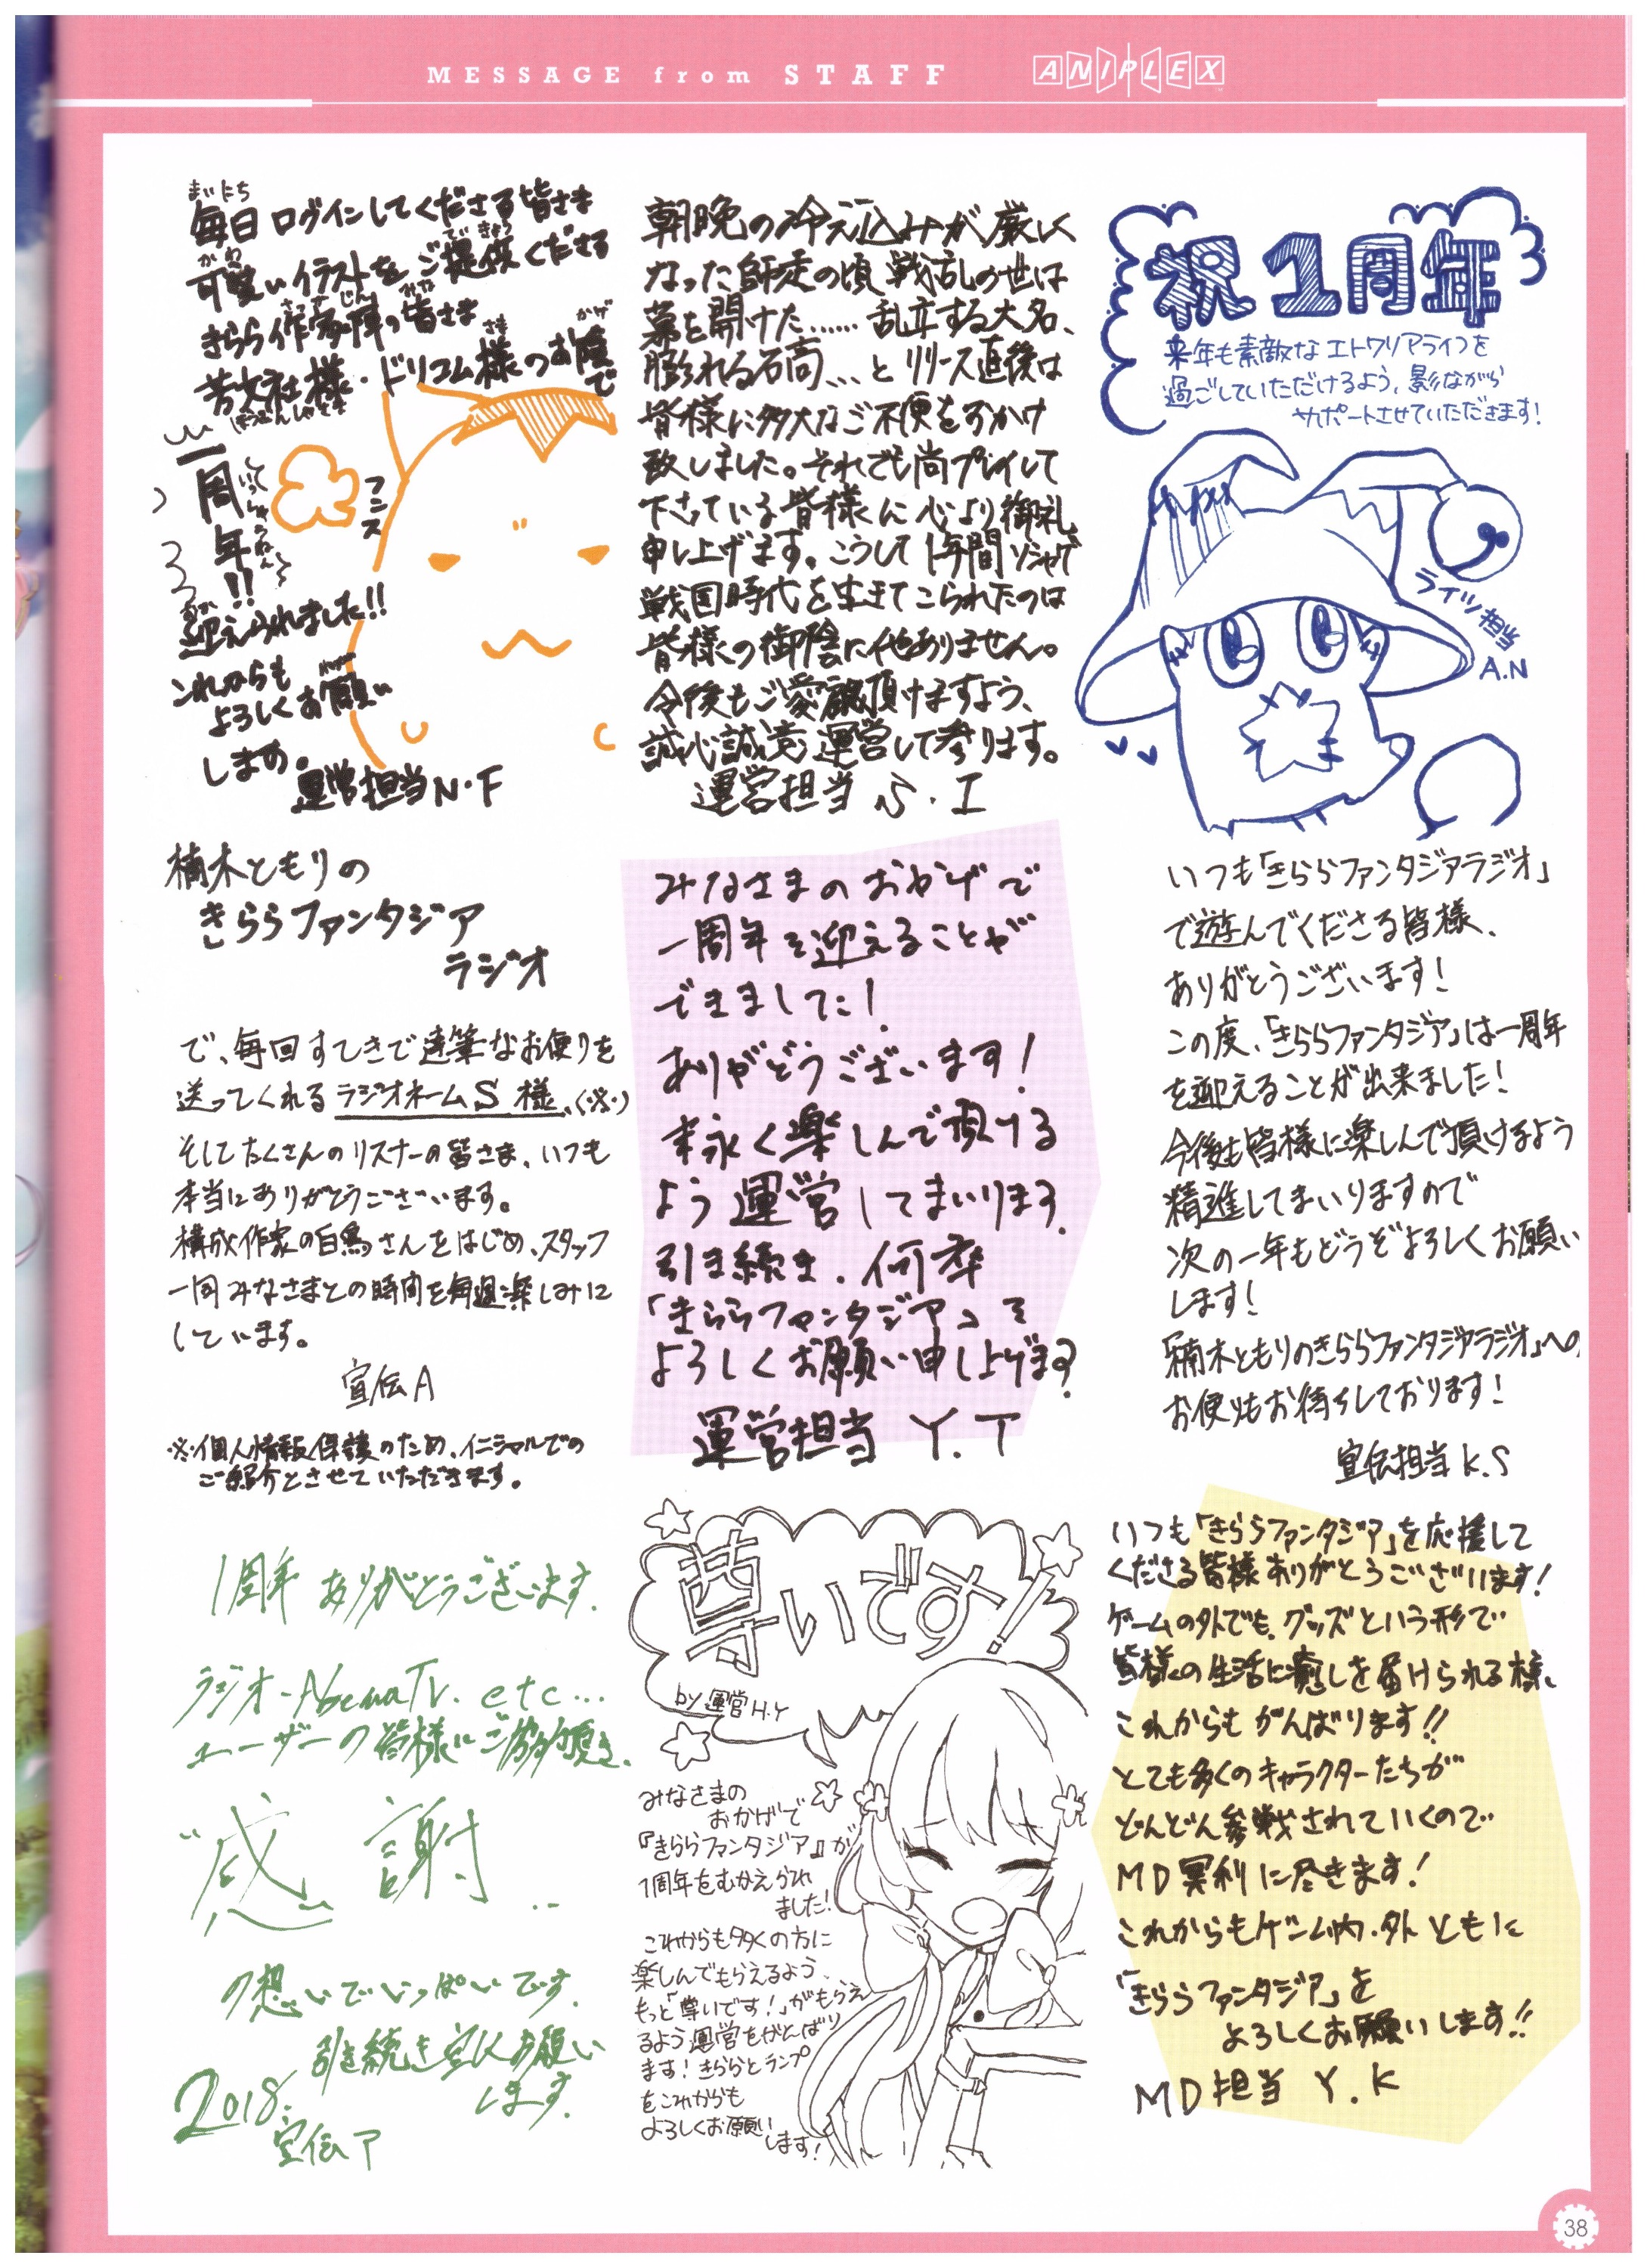 MESSAGE from STAFF ANIPLEX
まいにち
毎日ログインしてくださる皆さま
かわ ていきょう
可愛いイラストをご提供くださる
さっか じん みな
きらら作家陣の皆さま
さま かげ
芳文社様・ドリコム様のお陰で
ほうぶんしゃさま
一周年!!
いっしゅうねん
フンス
迎えられました!!
これからも
よろしくお願い
します。
運営担当N・F
朝晩の冷え込みが厳しく
なった師走の頃 戦乱の世は
幕を開けた…… 乱立する大名、
膨れる石高… とリリース直後は
皆様に多大なご不便をおかけ
致しました。それでも尚プレイして
下さっている皆様に心より御礼
申し上げます。こうして1年間ソシャゲ
戦国時代を生きてこられたのは
皆様の御陰に他ありません。
今後もご愛顧頂けますよう、
誠心誠意 運営して参ります。
運営担当 S・I
祝1周年
来年も素敵なエトワリアライフを
過ごしていただけるよう、影ながら
サポートさせていただきます!
ライツ担当
A.N
楠木ともりの
きららファンタジア
ラジオ
で、毎回すてきで達筆なお便りを
送ってくれるラジオネームS様、(※)
そしてたくさんのリスナーの皆さま、いつも
本当にありがとうございます。
構成作家の白鳥さんをはじめ、スタッフ
一同みなさまとの時間を毎週楽しみに
しています。
宣伝A
※個人情報保護のため、イニシャルでの
ご紹介とさせていただきます。
みなさまのおかげで
一周年を迎えることが
できました!
ありがとうございます!
末永く楽しんで頂ける
よう運営してまいります。
引き続き、何卒
「きららファンタジア」を
よろしくお願い申し上げます
運営担当 Y.T
いつも「きららファンタジアラジオ」
で遊んでくださる皆様、
ありがとうございます!
この度、「きららファンタジア」は一周年
を迎えることが出来ました!
今後も皆様に楽しんで頂けるよう
精進してまいりますので
次の一年もどうぞよろしくお願い
します!
「楠木ともりのきららファンタジアラジオ」への
お便りもお待ちしております!
宣伝担当K.S
1周年 ありがとうございます.
ラジオ-AbemaTv. etc...
ユーザーの皆様にご協力頂き、
"感謝"
の想いでいっぱいです.
引き続き宜しくお願い
します.
2018.
宣伝ア
尊いです!
by 運営H.Y
みなさまの
おかげで
『きららファンタジア』が
1周年をむかえられ
ました!
これからも多くの方に
楽しんでもらえるよう、
もっと「尊いです!」がもらえ
るよう運営をがんばり
ます! きららとランプ
をこれからも
よろしくお願い
します!
いつも「きららファンタジア」を応援して
くださる皆様ありがとうございます!
ゲームの外でも、グッズという形で
皆様の生活に癒しを届けられる様、
これからもがんばります!!
とても多くのキャラクターたちが
どんどん参戦されていくので
MD冥利に尽きます!
これからもゲーム内・外ともに
「きららファンタジア」を
よろしくお願いします!!
MD担当 Y.K
38